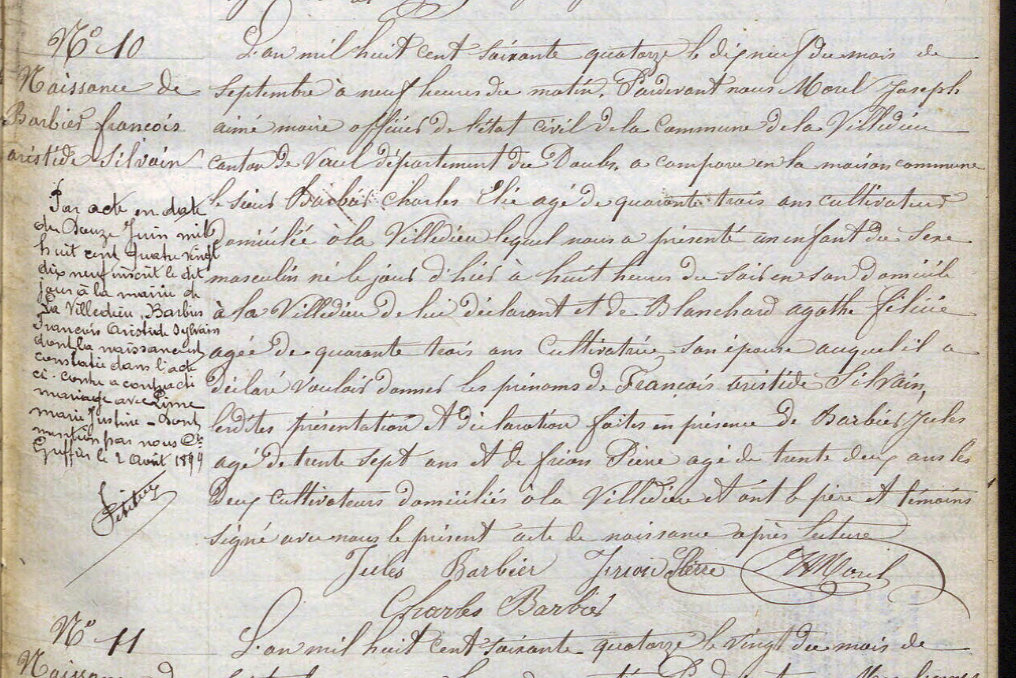 N° 10
Naissance de
Barbier françois
aristide Silvain
L'an mil huit cent soixante quatorze le dix neuf du mois de
Septembre à neuf heures du matin. Pardevant nous Morel Joseph
aimé maire officier de l'état civil de la commune de la Villedieu
canton de Vercel département du Doubs, a comparu en la maison commune
le sieur Barbier Charles Elie agé de quarante trois ans cultivateur
Domicilié à la Villedieu lequel nous a présenté un enfant du Sexe
masculin né le jour d'hier à huit heures du soir en son domicile
à la Villedieu de lui déclarant et de Blanchard agathe féliciè
agée de quarante trois ans Cultivatrice, son épouse auquel il a
déclaré vouloir donner les prénoms de François aristide Silvain,
lesdites présentation et déclaration faites en présence de Barbier Jules
agé de trente sept ans et de frion Pierre agé de trente deux ans les
deux cultivateurs domiciliés à la Villedieu et ont le père et témoins
signé avec nous le présent acte de naissance après lecture
Jules Barbier Frion Pierre Morel
Charles Barbier
Par acte en date
du Douze Juin mil
huit cent quatre vingt
dix neuf inscrit le dit
jour à la mairie de
La Villedieu, Barbier
François Aristide Sylvain
dont la naissance est
constatée dans l'acte
ci-contre a contracté
mariage avec
marie Justine - Dont
mention par nous
Greffier le 2 Août 1899
N° 11
Naissance de
L'an mil huit cent soixante quatorze le vingt du mois de